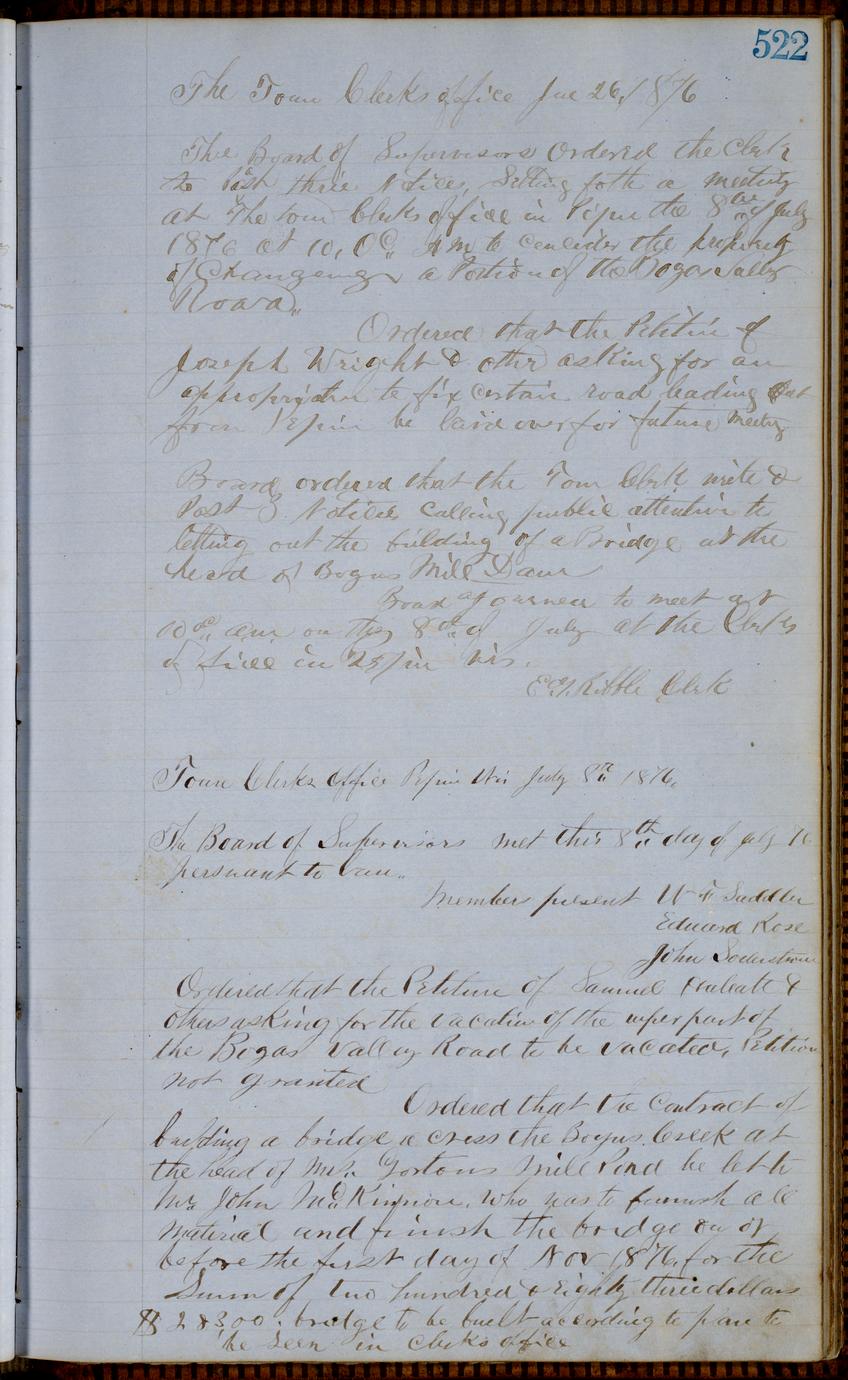 522
The Town Clerks office Jne 26, 1876
The Board of Supervisors Ordered the Clerk
to Post three Notices, Setting forth a meeting
at The town Clerks office in Pepin the 8th of July
1876 at 10, OC,, AM to concider the propriety
of Changeing a Portion of the Bogas Valley
Road,,
Ordered that the Petition of
Joseph Wright & other asking for an
appropriation to fix certain road leading out
from Pepin be laid over for future meeting
Board ordered that the Town Clerk write &
Post 3 Notices calling public attention to
letting out the bilding of a Bridge at the
head of Bogus Mill Dam
Board ajournea to meet at
10 oc,, am on the 8th of July at the Clerks
office in Pepin Wis.
Clerk
Town Clerks Office Pepin Wis July 8th 1876.
The Board of Supervisors met this 8th day of July 76
persuant to
Members present W F Saddler
Edward Rose
John Soderstrom
Ordered that the Petition of Samuel &
others asking for the vacation of the uper part of
the Bogas Valley Road to be vacated, Petition
not granted
Ordered that the Contract of
building a bridge a cross the Bogus Creek at
the head of Mr. Gortons Mill Pond be let to
Mr John McKinnon. Who was to furnish all
material and finish the bridge on or
before the first day of Nov 1876, for the
Sum of two hundred & Eighty three dollars
$ 283.00. bridge to be built according to plan to
be seen in clerks office